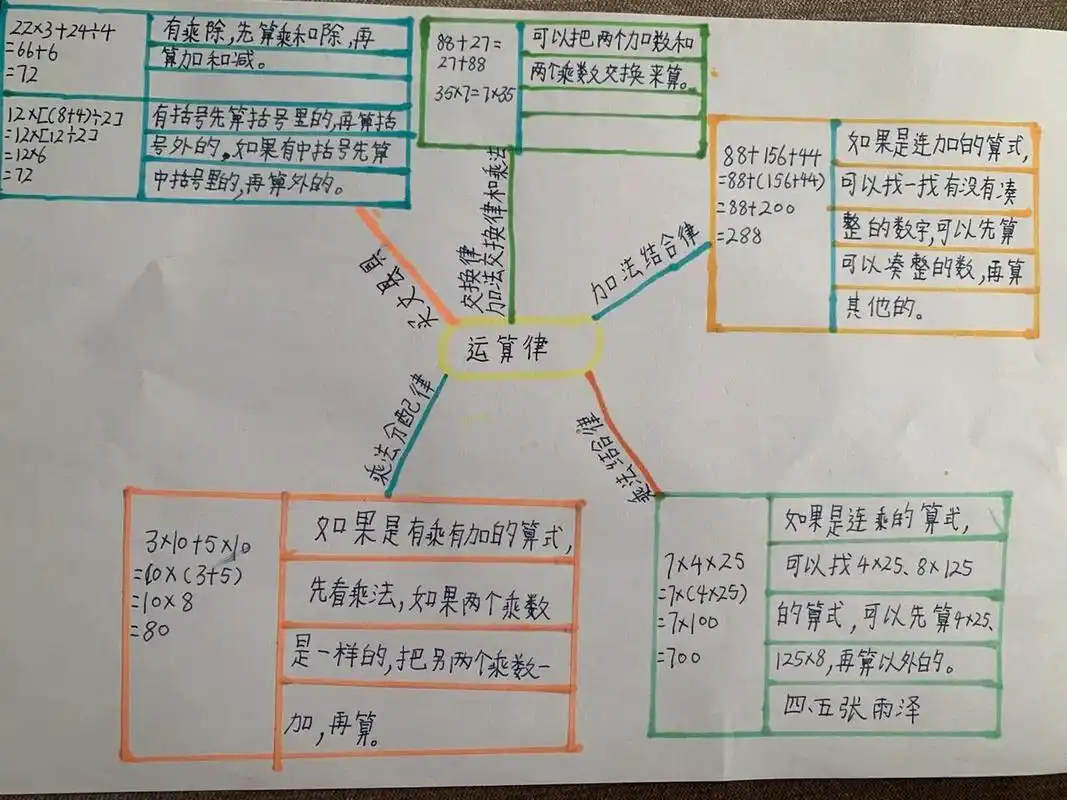 22×3+24÷4
=66+6
=72
有乘除,先算乘和除,再
算加和减。
12×[(8+4)÷2]
=12×[12÷2]
=12×6
=72
有括号先算括号里的,再算括
号外的。如果有中括号先算
中括号里的,再算外的。
88+27=
27+88
35×7=7×35
可以把两个加数和
两个乘数交换来算。
88+156+44
=88+(156+44)
=88+200
=288
如果是连加的算式,
可以找一找有没有凑
整的数字,可以先算
可以凑整的数,再算
其他的。
交换律
加法交换律和乘法
加法结合律
运算律
乘法分配律
乘法结合律
3×10+5×10
=10×(3+5)
=10×8
=80
如果是有乘有加的算式,
先看乘法,如果两个乘数
是一样的,把另两个乘数一
加,再算。
7×4×25
=7×(4×25)
=7×100
=700
如果是连乘的算式,
可以找4×25、8×125
的算式,可以先算4×25、
125×8,再算以外的。
四、五张雨泽